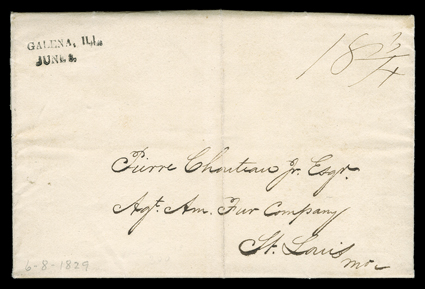 GALENA, ILL
JUNE 8.
18 3/4
Pierre Chouteau Jr. Esqr.
Agt. Am. Fur Company
St. Louis
Mo
6-8-1829